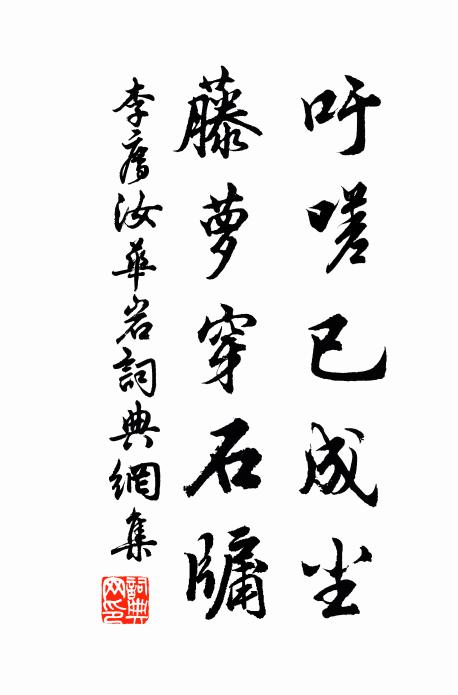 吁嗟已成尘
藤萝穿石牗
李廌汝華岩詞典網集
詞典網印